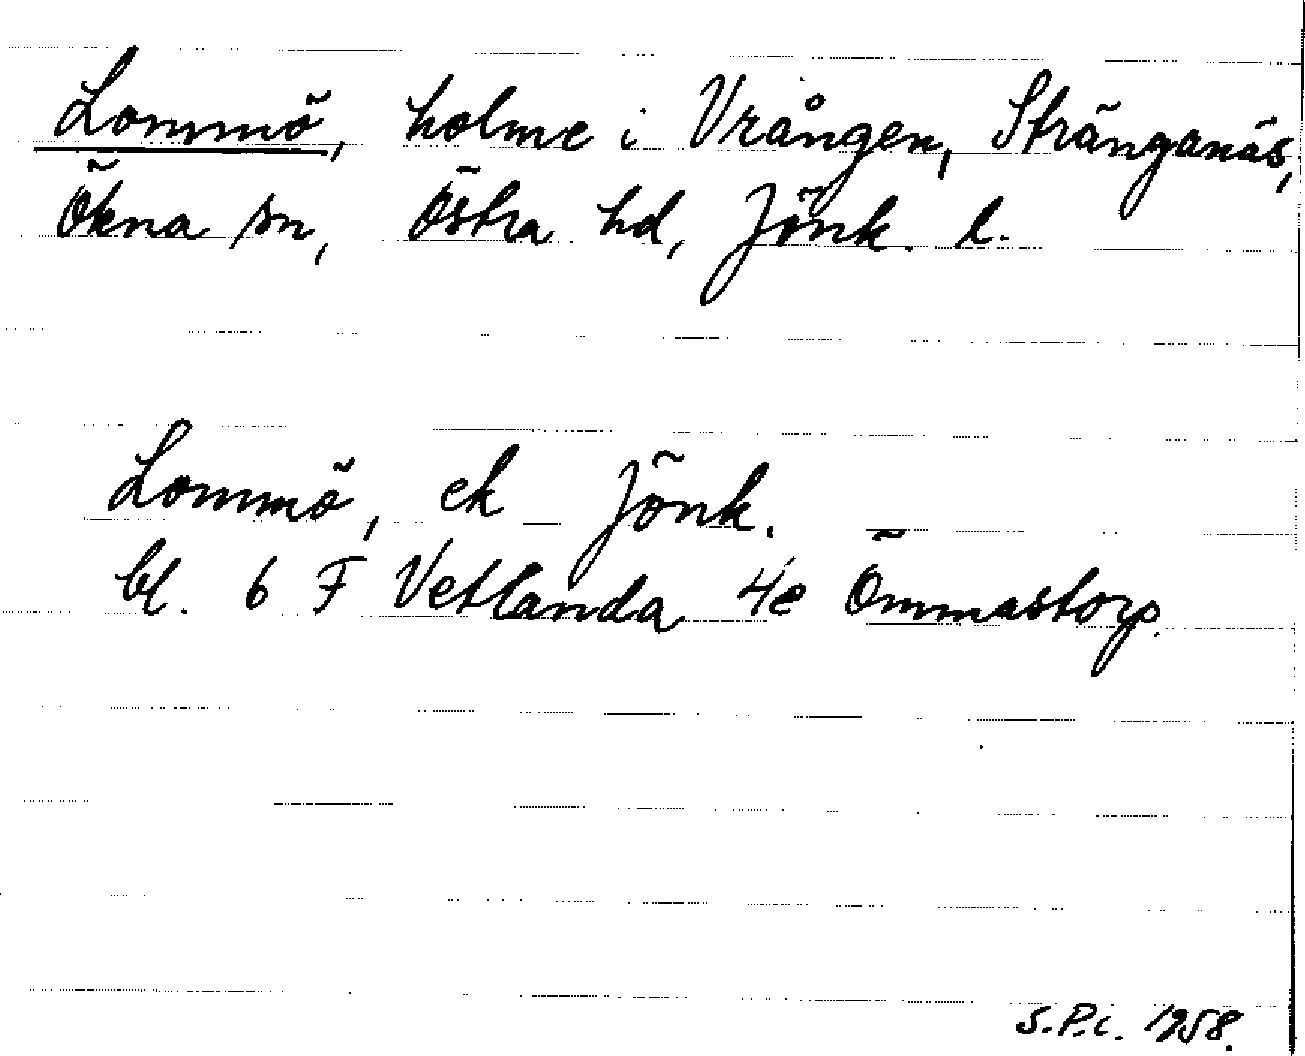 Lommö, holme i Vrången, Stränganäs,
Ökna sn, Östra hd, Jönk. l.
Lommö, ek Jönk.
bl. 6 F Vetlanda 4e Ömmastorp.
S.P.i. 1958.